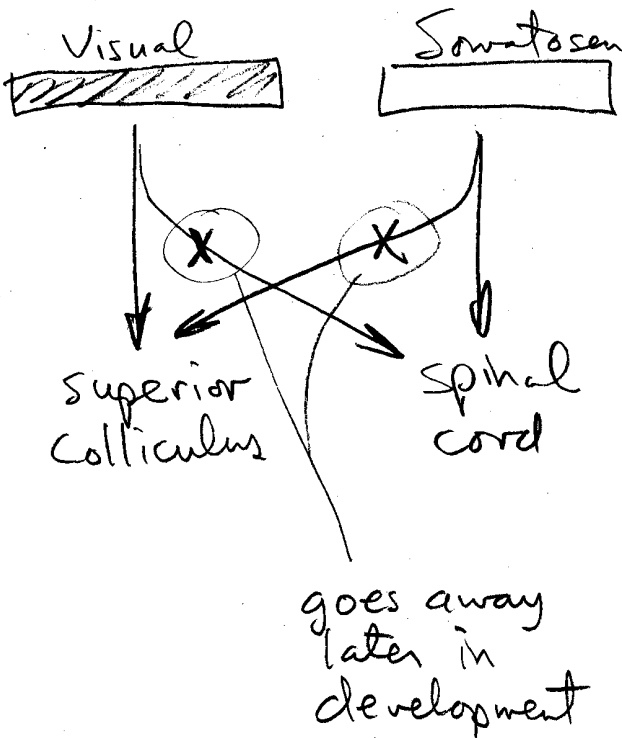 Visual
Somatosen
X
X
superior
colliculus
spinal
cord
goes away
later in
development